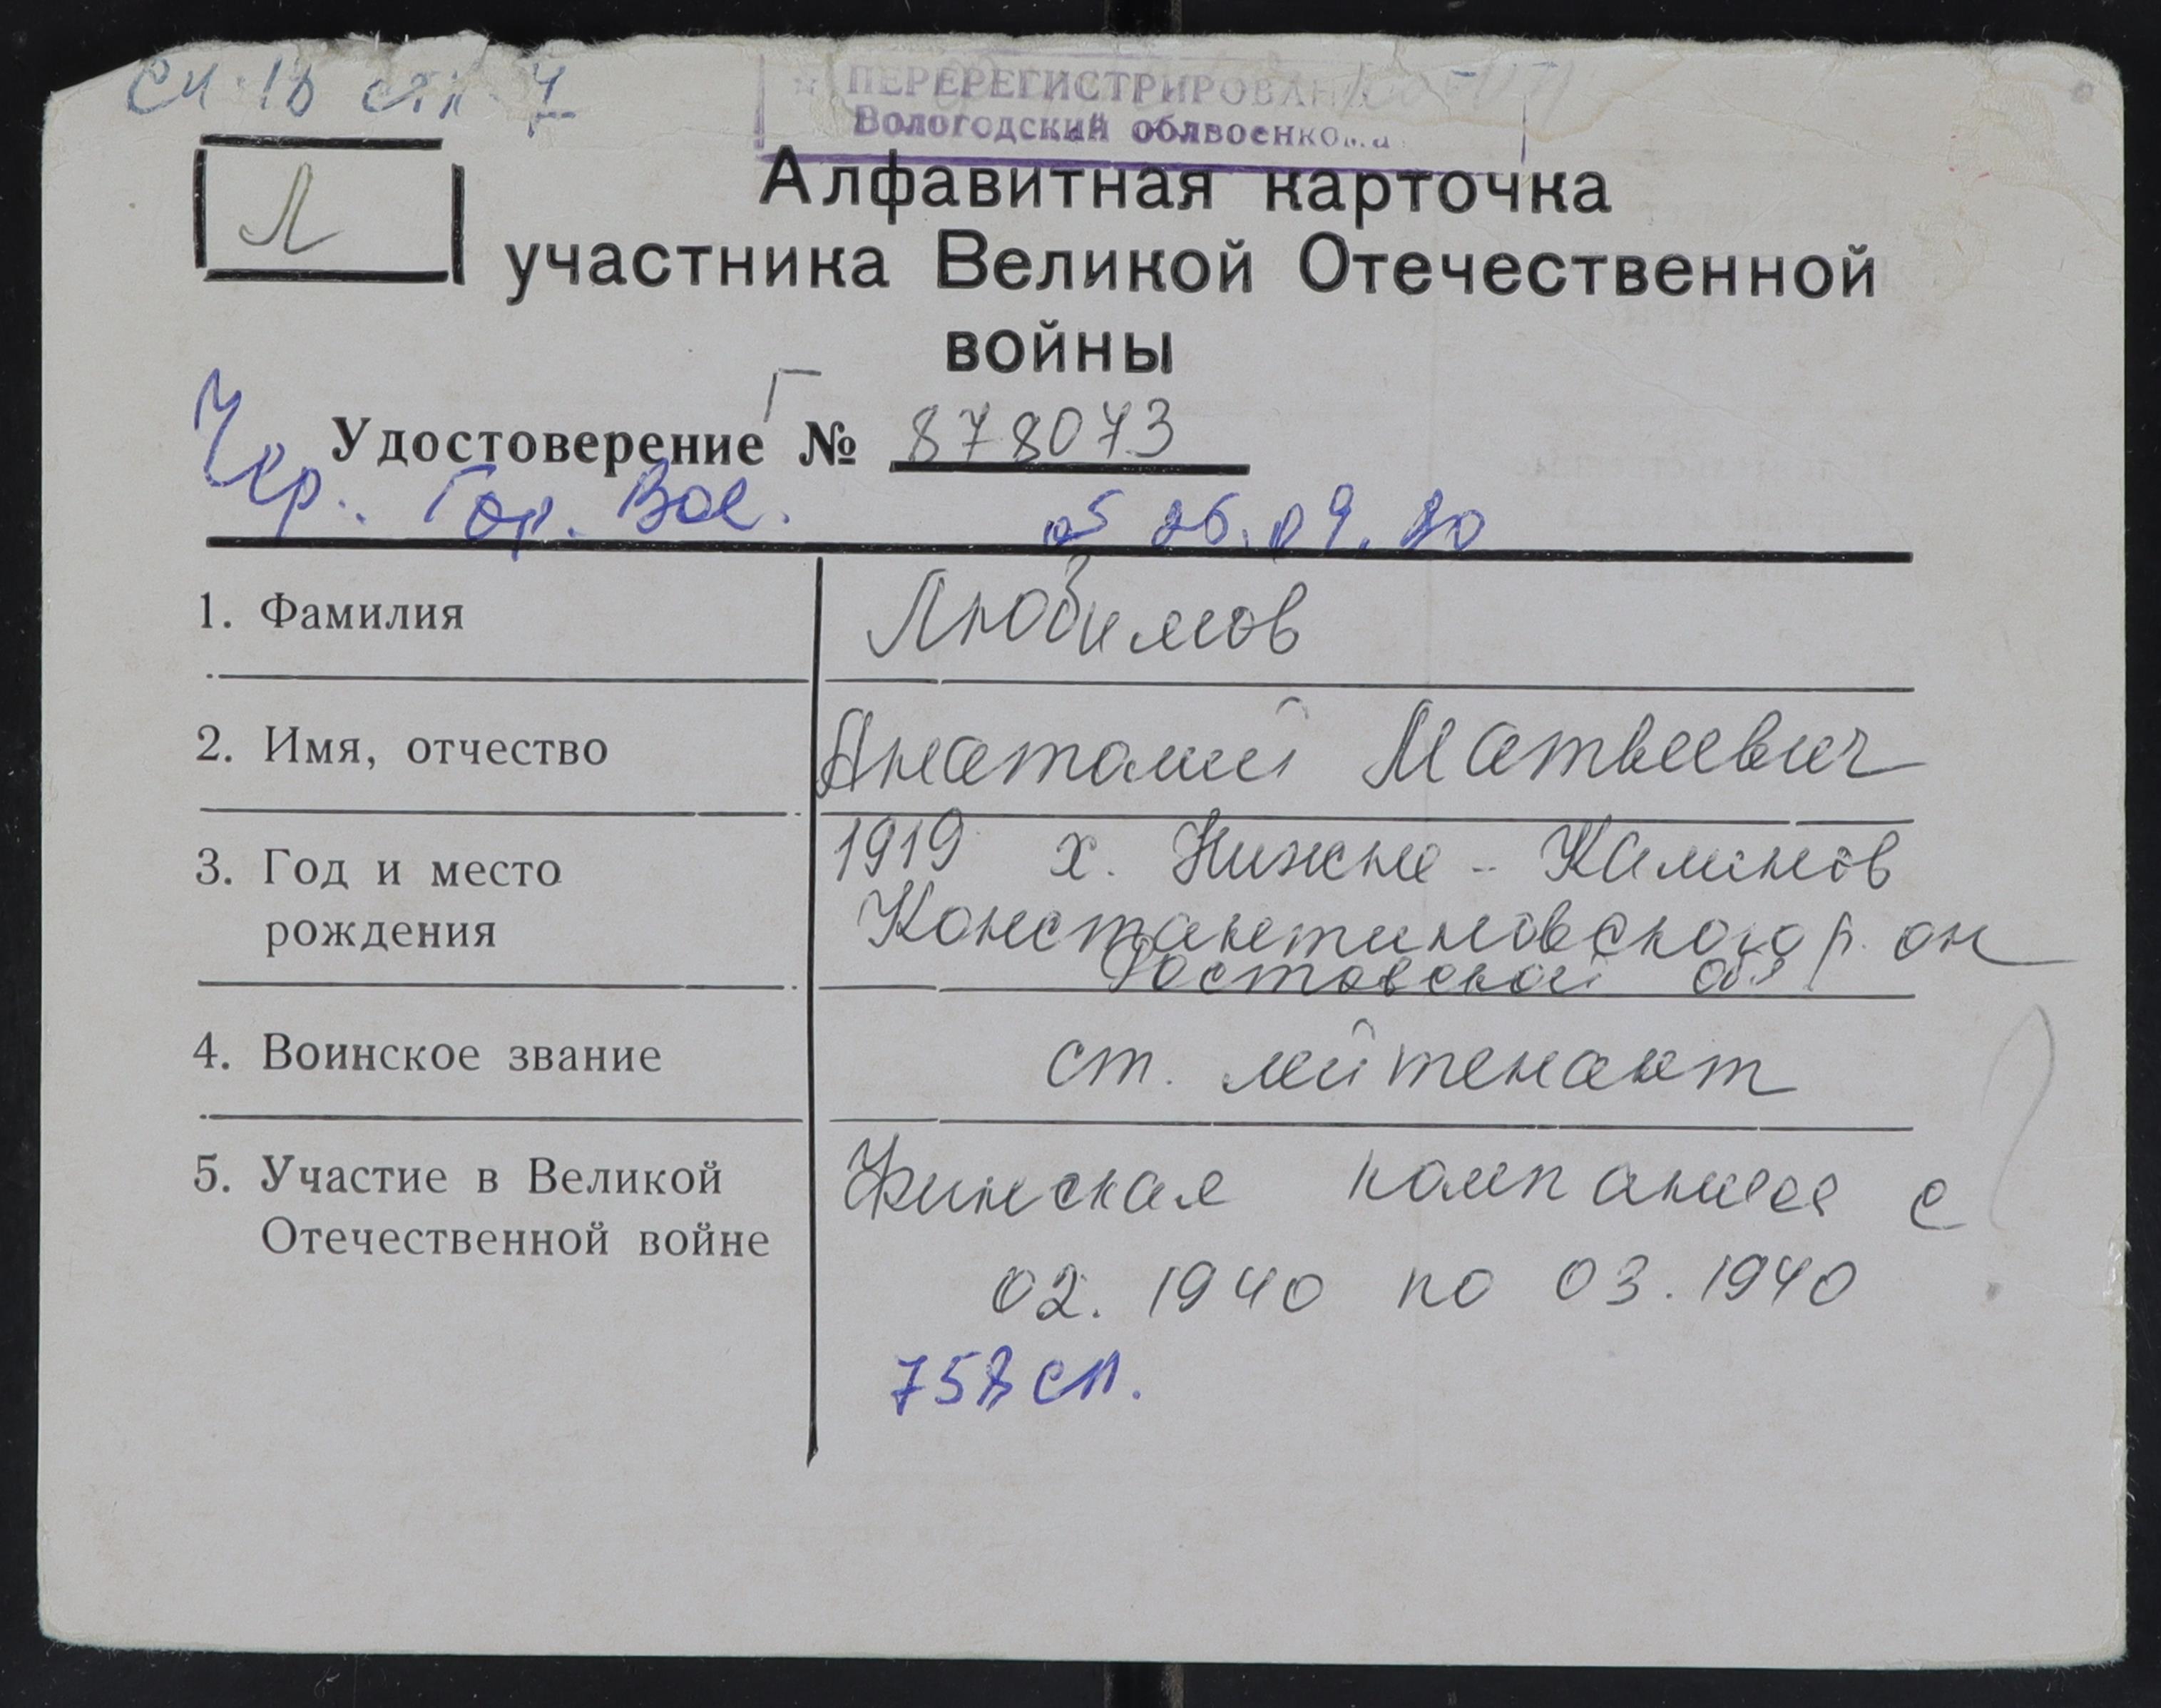 ПЕРЕРЕГИСТРИРОВАН
Вологодский облвоенкома
Л
Алфавитная карточка
участника Великой Отечественной
войны
Удостоверение Г № 878073
Чер. Гор. Вое. от 26.09.80
1. Фамилия Любимов
2. Имя, отчество Анатолий Матвеевич
3. Год и место 1919 х. Нижне-Калинов
рождения Константиновского р.он
Ростовской обл
4. Воинское звание ст. лейтенант
5. Участие в Великой Финская компания с
Отечественной войне 02.1940 по 03.1940
758 сп.
?